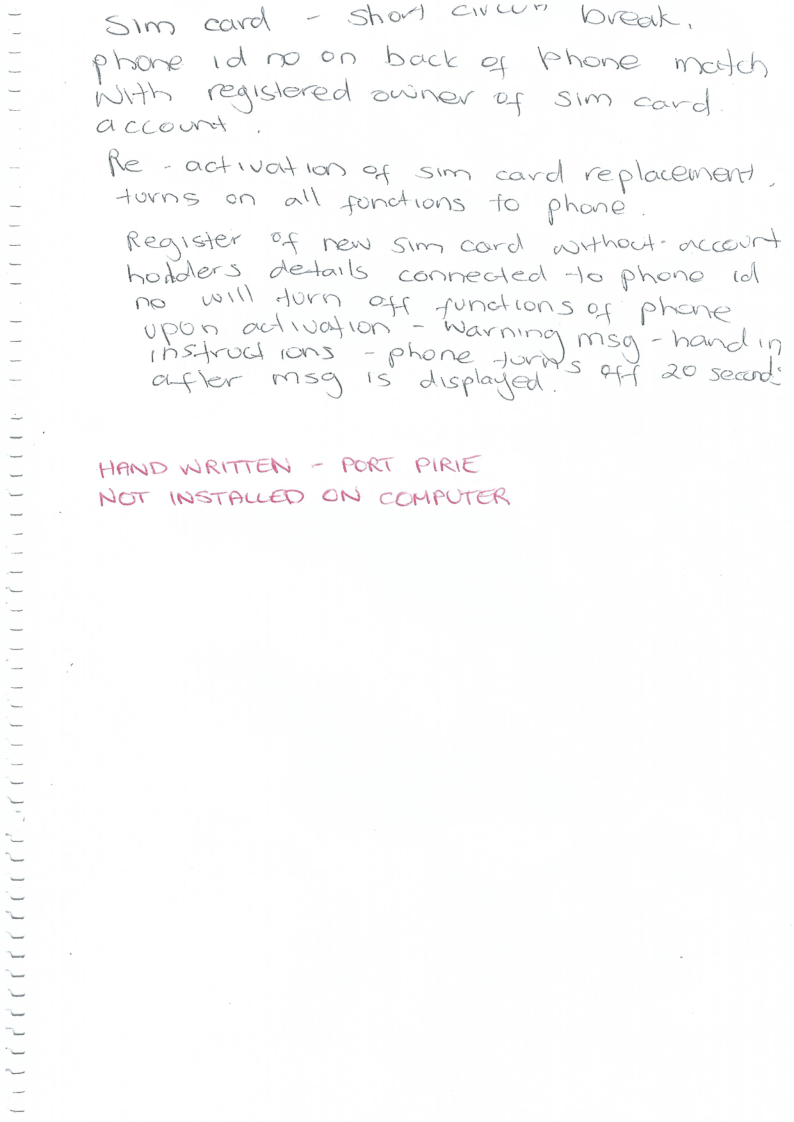 Sim card - short circuit break.
phone id no on back of phone match
with registered owner of sim card
account.
Re-activation of sim card replacement.
turns on all functions to phone.
Register of new sim card without account
hodders details connected to phone id
no will turn off functions of phone
upon activation - warning msg - hand in
instructions - phone turns off 20 seconds
after msg is displayed.
HAND WRITTEN - PORT PIRIE
NOT INSTALLED ON COMPUTER